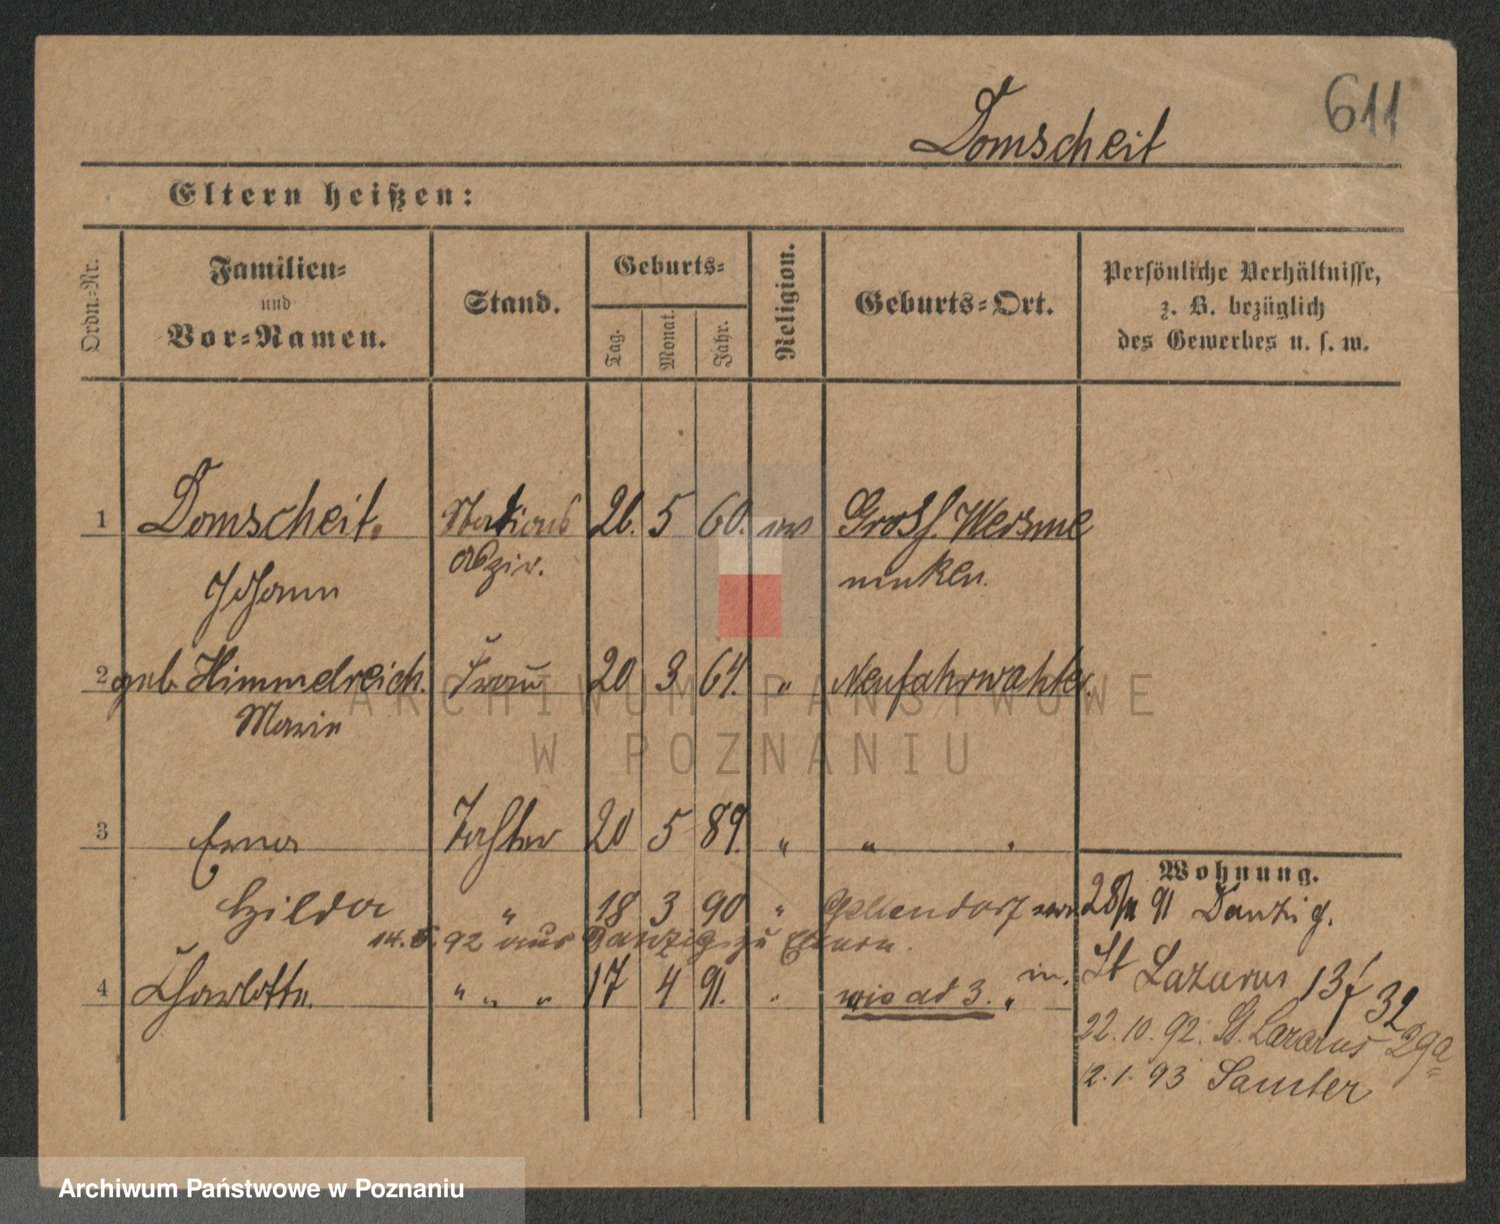 611
Domscheit
Eltern heißen:
Ordn.-Nr.
Familien-
und
Vor-Namen.
Stand.
Geburts-
Tag.
Monat.
Jahr.
Religion.
Geburts-Ort.
Persönliche Verhältnisse,
z. B. bezüglich
des Gewerbes u. s. w.
1 Domscheit. Stations 26. 5 60. Gross. Wersme
Johann ninken.
2 geb. Himmelreich. Frau 20 3 64. " Neufahrwasser.
Marie
3 Erna Tochter 20 5 89. " " "
Wohnung.
Hilda " 18 3 90 " 28/11 91 Danzig.
14. 5. 92 aus Danzig zu Eltern.
4 Charlotte. " " " 17 4 91. " wie ad 3. " St Lazarus 13f 32
22. 10. 92. St. Lazarus 29a
12. 1. 93 Samter
ARCHIWUM PAŃSTWOWE
W POZNANIU
Archiwum Państwowe w Poznaniu